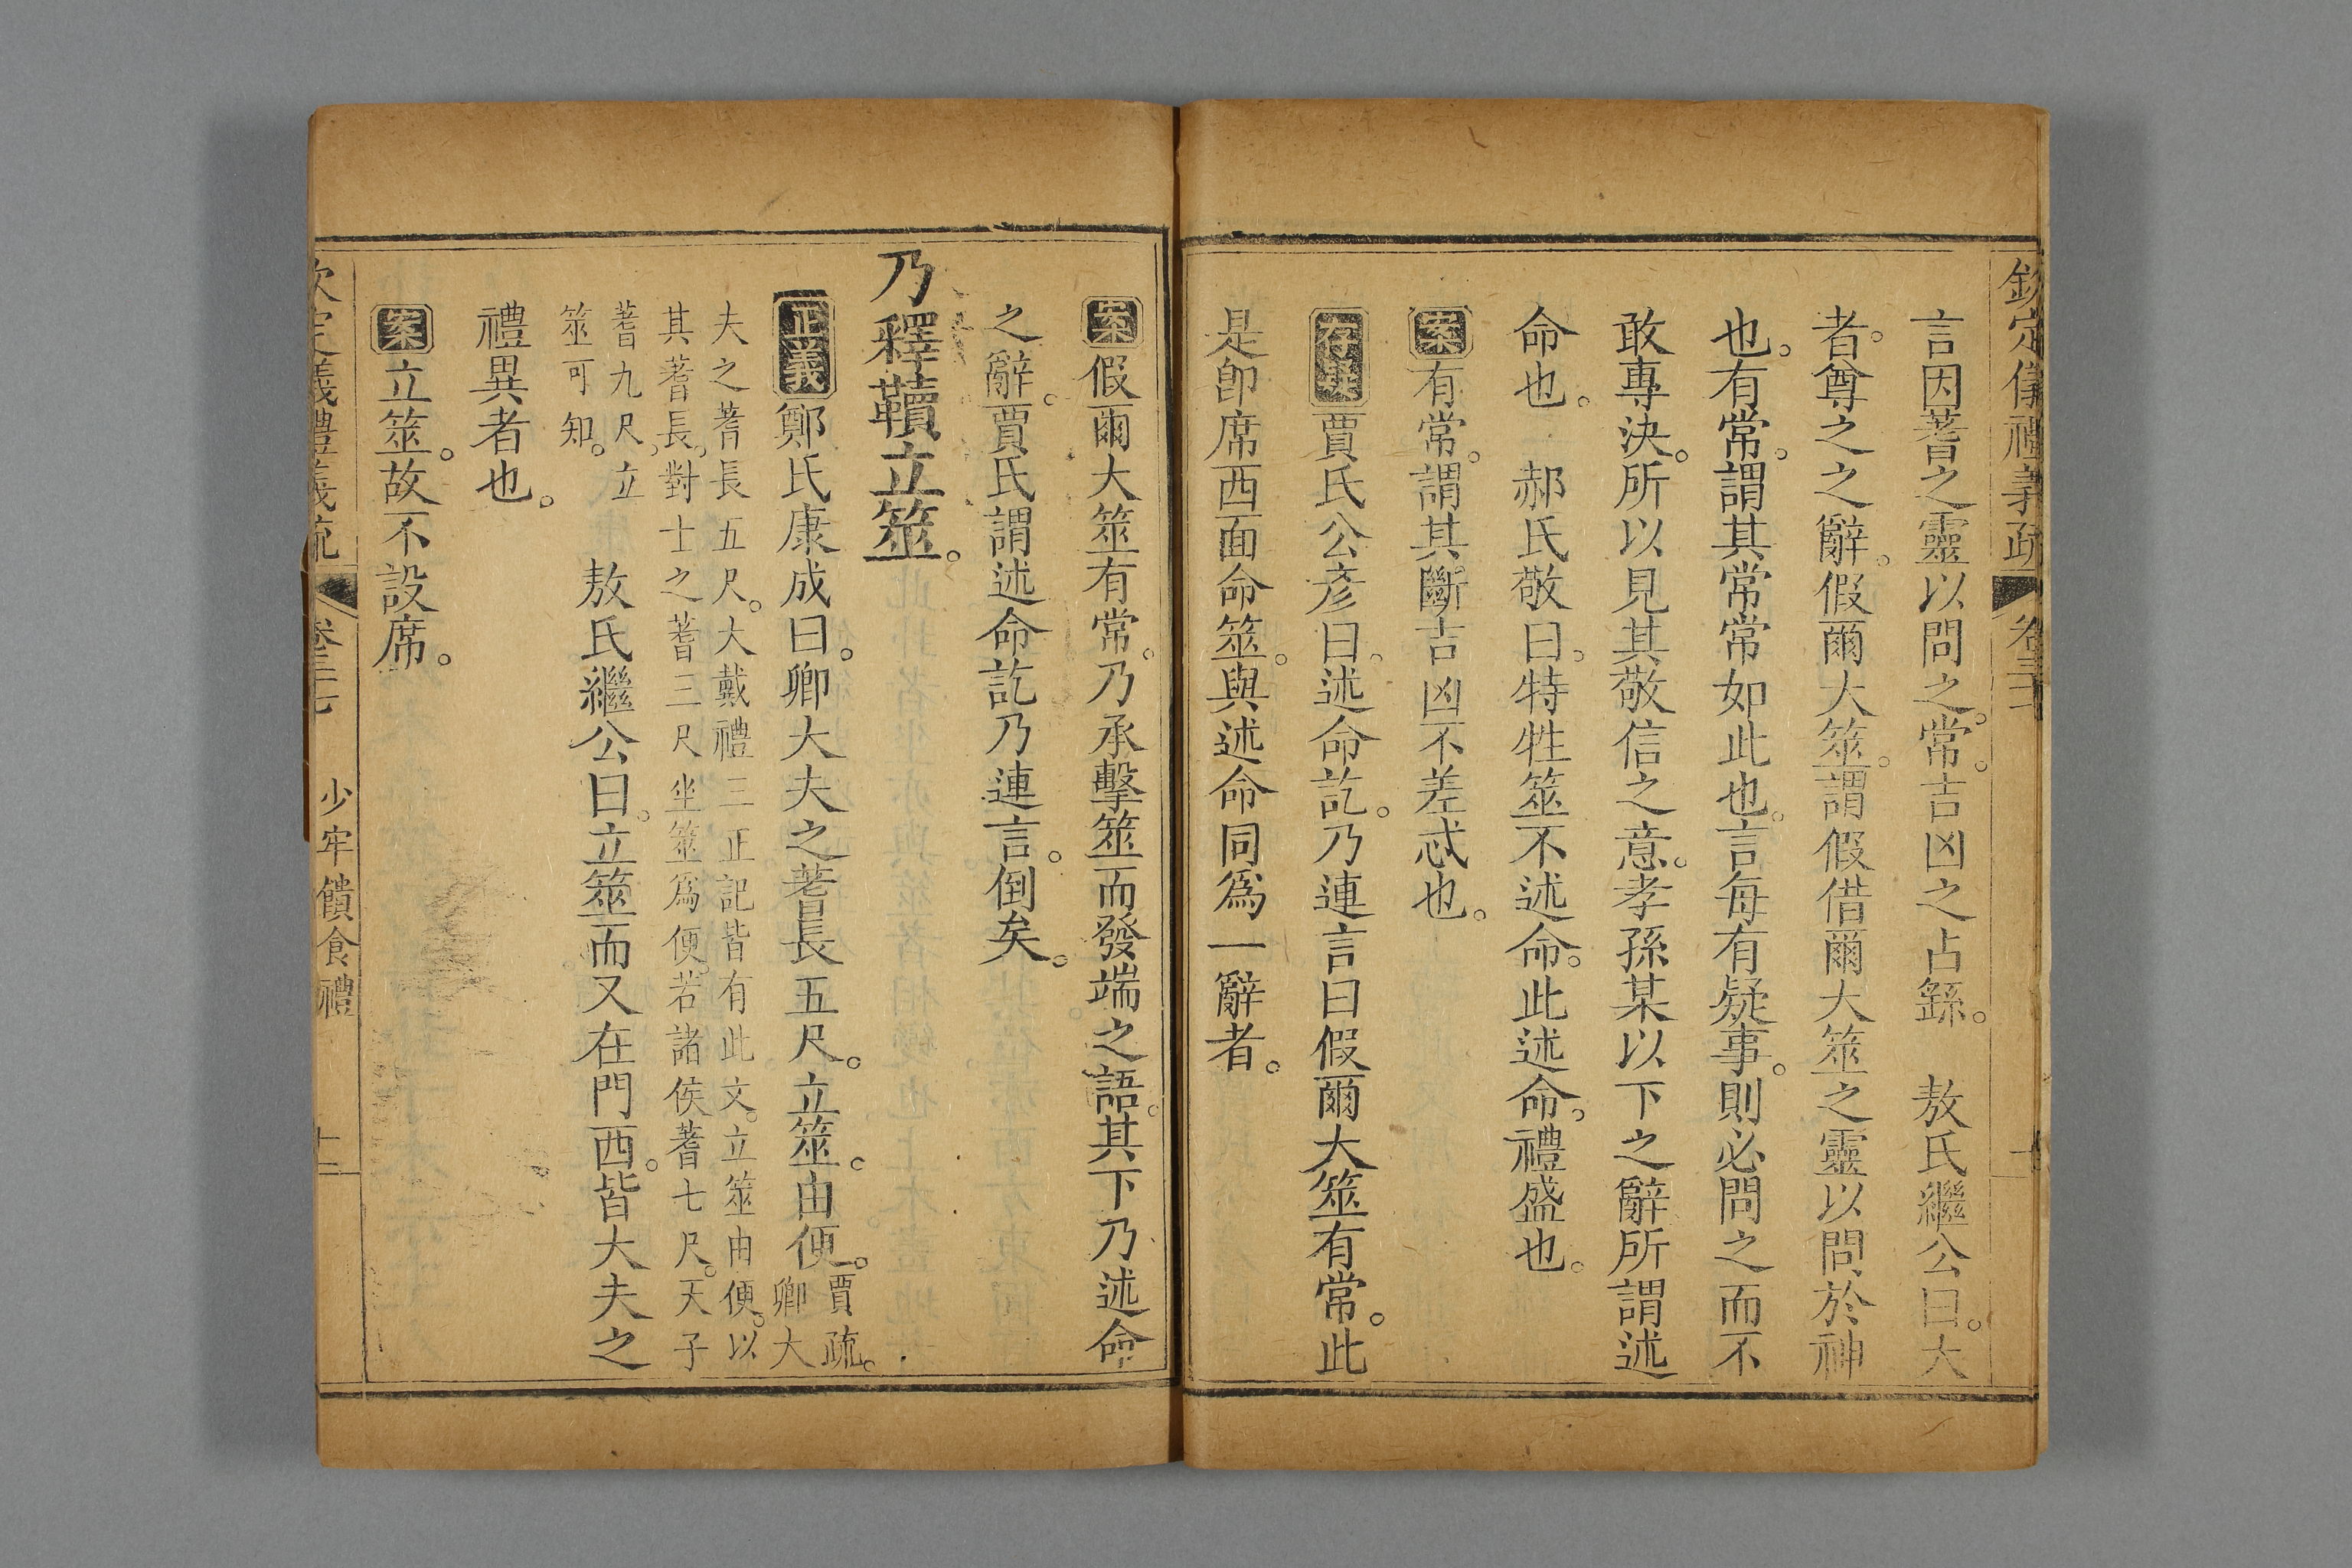 欽定儀禮義疏 卷三十
言因蓍之靈以問之。常。吉凶之占繇。 敖氏繼公曰。大
者。尊之之辭。假爾大筮。謂假借爾大筮之靈以問於神
也。有常。謂其常常如此也。言每有疑事。則必問之而不
敢專決。所以見其敬信之意。孝孫某以下之辭所謂述
命也。 郝氏敬曰。特牲筮不述命。此述命。禮盛也。
案有常。謂其斷吉凶不差忒也。
存異賈氏公彥曰。述命訖。乃連言曰假爾大筮有常。此
是卽席西面命筮。與述命同爲一辭者。
案假爾大筮有常。乃承擊筮而發端之語。其下乃述命
之辭。賈氏謂述命訖乃連言。倒矣。
乃釋韇立筮。
正義鄭氏康成曰。卿大夫之蓍長五尺。立筮。由便。賈疏。卿大
夫之蓍長五尺。大戴禮三正記皆有此文。立筮由便。以
其蓍長。對士之蓍三尺坐筮爲便。若諸侯蓍七尺。天子
蓍九尺。立
筮可知。
敖氏繼公曰。立筮而又在門西。皆大夫之
禮異者也。
案立筮。故不設席。
欽定儀禮義疏 卷三十七 少牢饋食禮 十二